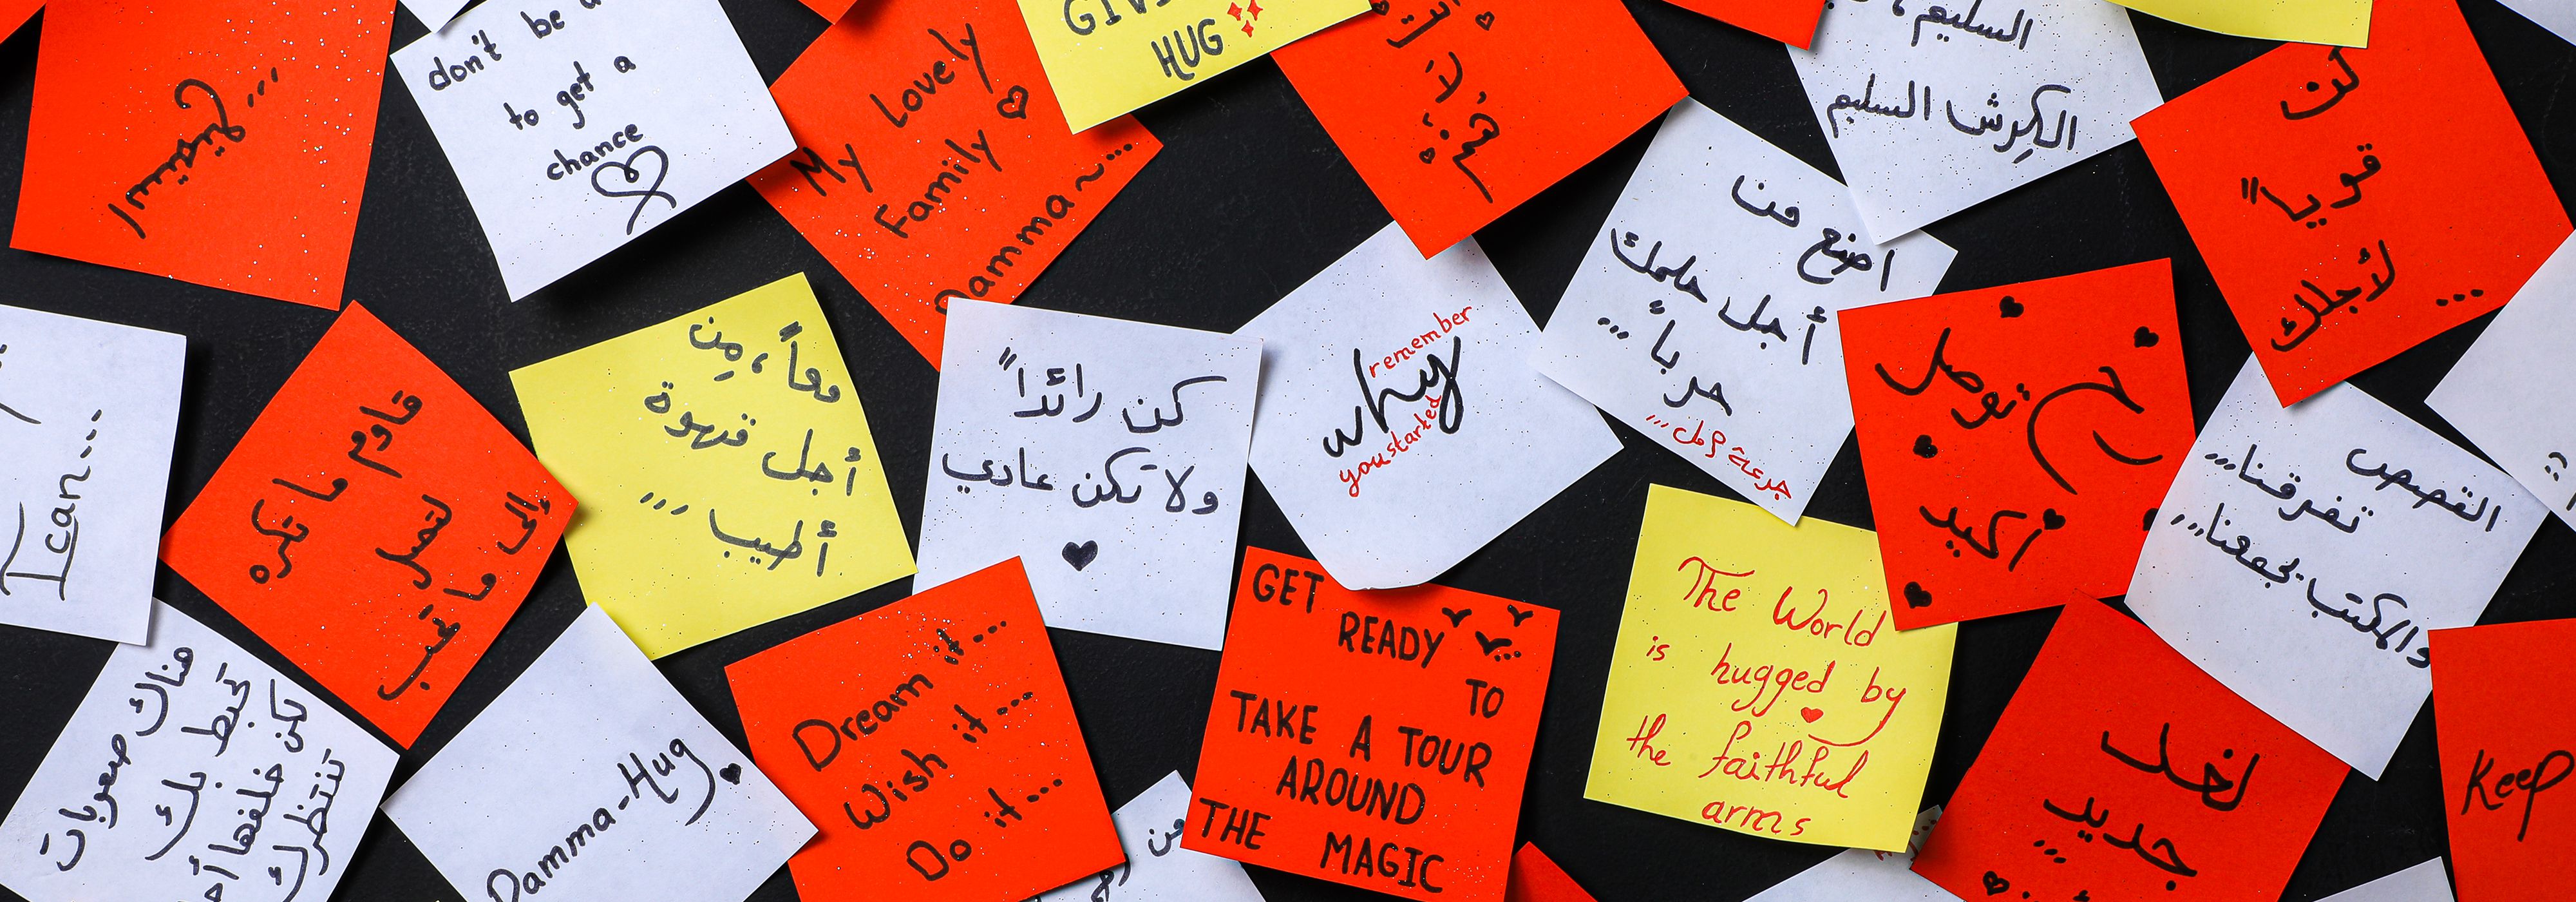 don't be a
to get a
chance
My Lovely
Family
Damma~...
HUG
السليم،
الكرش السليم
كن
قوياً
لأجلك ...
اصنع من
أجل حلمك
حرباً ...
جرعة أمل ...
remember
why
you started
كن رائداً
ولا تكن عادي
معاً، مِن
أجل قهوة
أطيب ...
قاوم ما تكره
لتصل
إلى ما تحب
I can...
توصل
أكيد
القصص
تفرقنا...
والمكتب يجمعنا...
The World
is hugged by
the faithful
arms
GET
READY
TO
TAKE A TOUR
AROUND
THE MAGIC
Dream it...
Wish it...
Do it...
Damma-Hug
هناك صعوبات
تحبط بك
لكن خلفها
تنتظرك
لغد
جديد
...
Keep
من